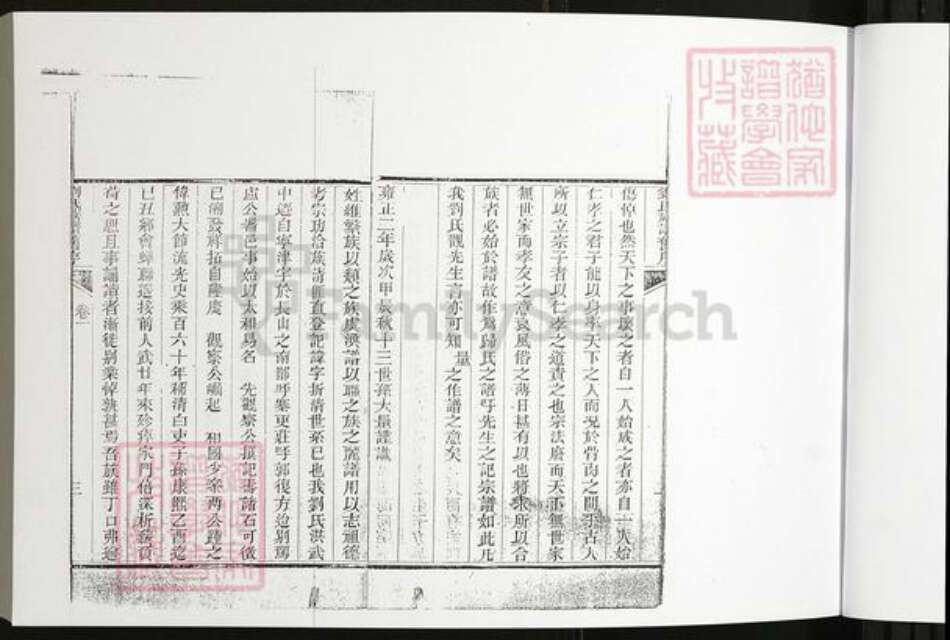 悖也然天下之事壞之者自一人始成之者亦自一人始
仁孝之君子能以身率天下之人而況於骨肉之間乎古人
所以立宗子者以仁孝之道責之也宗法廢而天下無世家
無世家而孝友之意衰風俗之薄日甚有以也將求所以合
族者必始於譜故作為歸氏之譜吁先生之記宗譜如此凡
我劉氏觀先生言亦可知量之作譜之意矣
雍正二年歲次甲辰秋十三世孫大量謹識
姓維繫族以類之族虞渙譜以聯之族之麗譜用以志祖德
考宗功洽族清匪直登記諱字折清世系已也我劉氏洪武
中遷自寧津宇於長山之南鄙呼寨更莊呼郭復方沧別駕
盧公署邑事始以太和易名 先觀察公撰記壽諸石可徵
已開發祥拓自陸慶 觀察公崛起 相國少宰兩公踵之
偉勲大節流光史乘百六十年稱清白吏子孫康熙乙酉迄
已丑鄉會蟬聯遞接前人武廿年來殄瘁家門倍深析薪負
荷之思且事誦讀者漸徙別業悼孰甚焉吾族雖丁口弗逾
卷一
三
FamilySearch